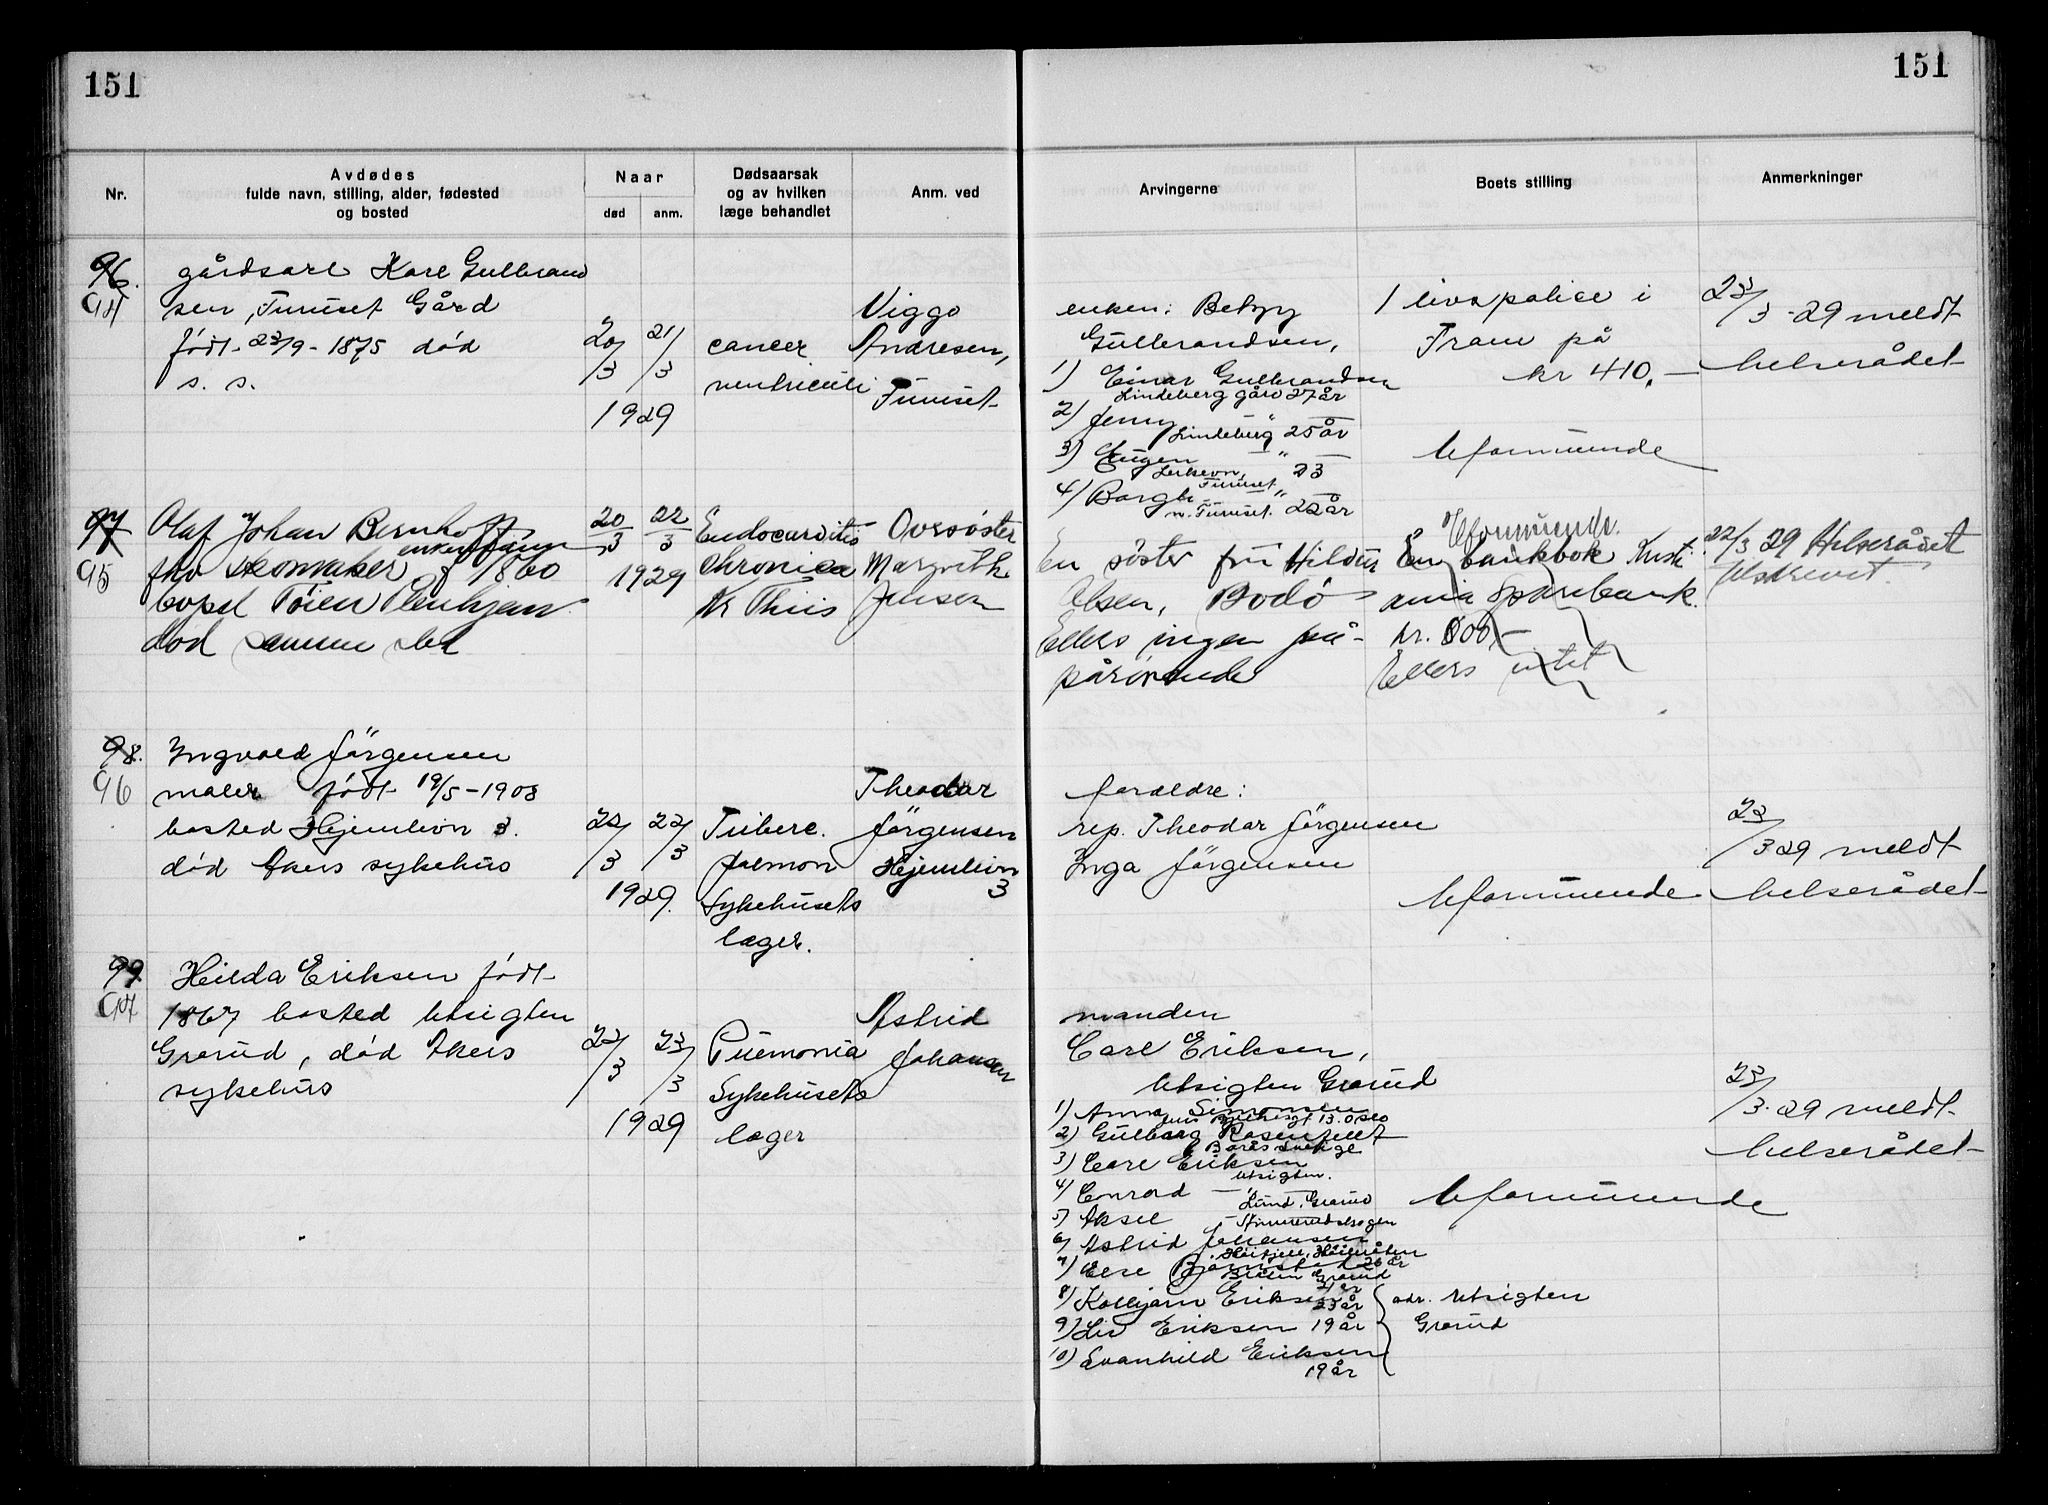 151
151
Nr.
Avdødes
fulde navn, stilling, alder, fødested
og bosted
Naar
død
anm.
Dødsaarsak
og av hvilken
læge behandlet
Anm. ved
Arvingerne
Boets stilling
Anmerkninger
96.
94
gårdsarb Karl Gulbrand
sen, Furuset Gård
født 23/9 - 1875 død
s. s.
20/3
21/3
1929
cancer
ventriculi
Viggo
Andresen,
Furuset
enken: Betzy
Gulbrandsen,
1) Einar Gulbrandsen
Lindeberg gård 27 år
2) Jenny — " —
Lindeberg 25 år
3) Eugen — " —
Furuset 23
4) Borgh. — " —
Furuset. 22 år
1 livspolice i
Fram på
kr 410.—
Uformuende
23/3 - 29 meldt
helserådet
97
95
Olaf Johan Bernhoff
enkemann
fhv skomaker f 1860
bopel Tøien
død samme sted
20/3
22/3
1929
Endocarditis
chronica
Kr Thiis
Oversøster
Margrethe
Jensen
En søster fru Hildur
Olsen, Bodø
Ellers ingen
pårørende
Uformuende.
En bankbok Kristi
ania Sparebank.
kr. 800,—
Ellers intet
22/3 29 Helserådet
tilskrevet.
98.
96
Ingvald Jørgensen
maler født 19/5 - 1903
bosted Hjemlivn 3.
død Akers sykehus
22/3
22/3
1929.
Tuberc.
pulmon
Sykehusets
læger.
Theodor
Jørgensen
Hjemlivn
3
foreldre:
rep. Theodor Jørgensen
Inga Jørgensen
Uformuende
23/3 29 meldt
helserådet
99.
97
Hilda Eriksen født
1867 bosted Utsigten
Grorud, død Akers
sykehus
22/3
23/3
1929
Puemonia
Sykehusets
læger
Astrid
Johansen
manden
Carl Eriksen,
Utsigten Grorud
1) Anna Simonsen
13. Oslo
2) Gulborg Rosenfeldt
Borås Sverige
3) Carl Eriksen
Utsigten.
4) Conrad — " —
Lund, Grorud
5) Aksel —
6) Astrid Johansen
7) Else Bjørnstad 26 år
Grorud
8) Kolbjørn Eriksen
23 år
9) Liv Eriksen 19 år
10) Svanhild Eriksen
19 år
adr. Utsigten
Grorud
Uformuende
23/3 - 29 meldt
helserådet